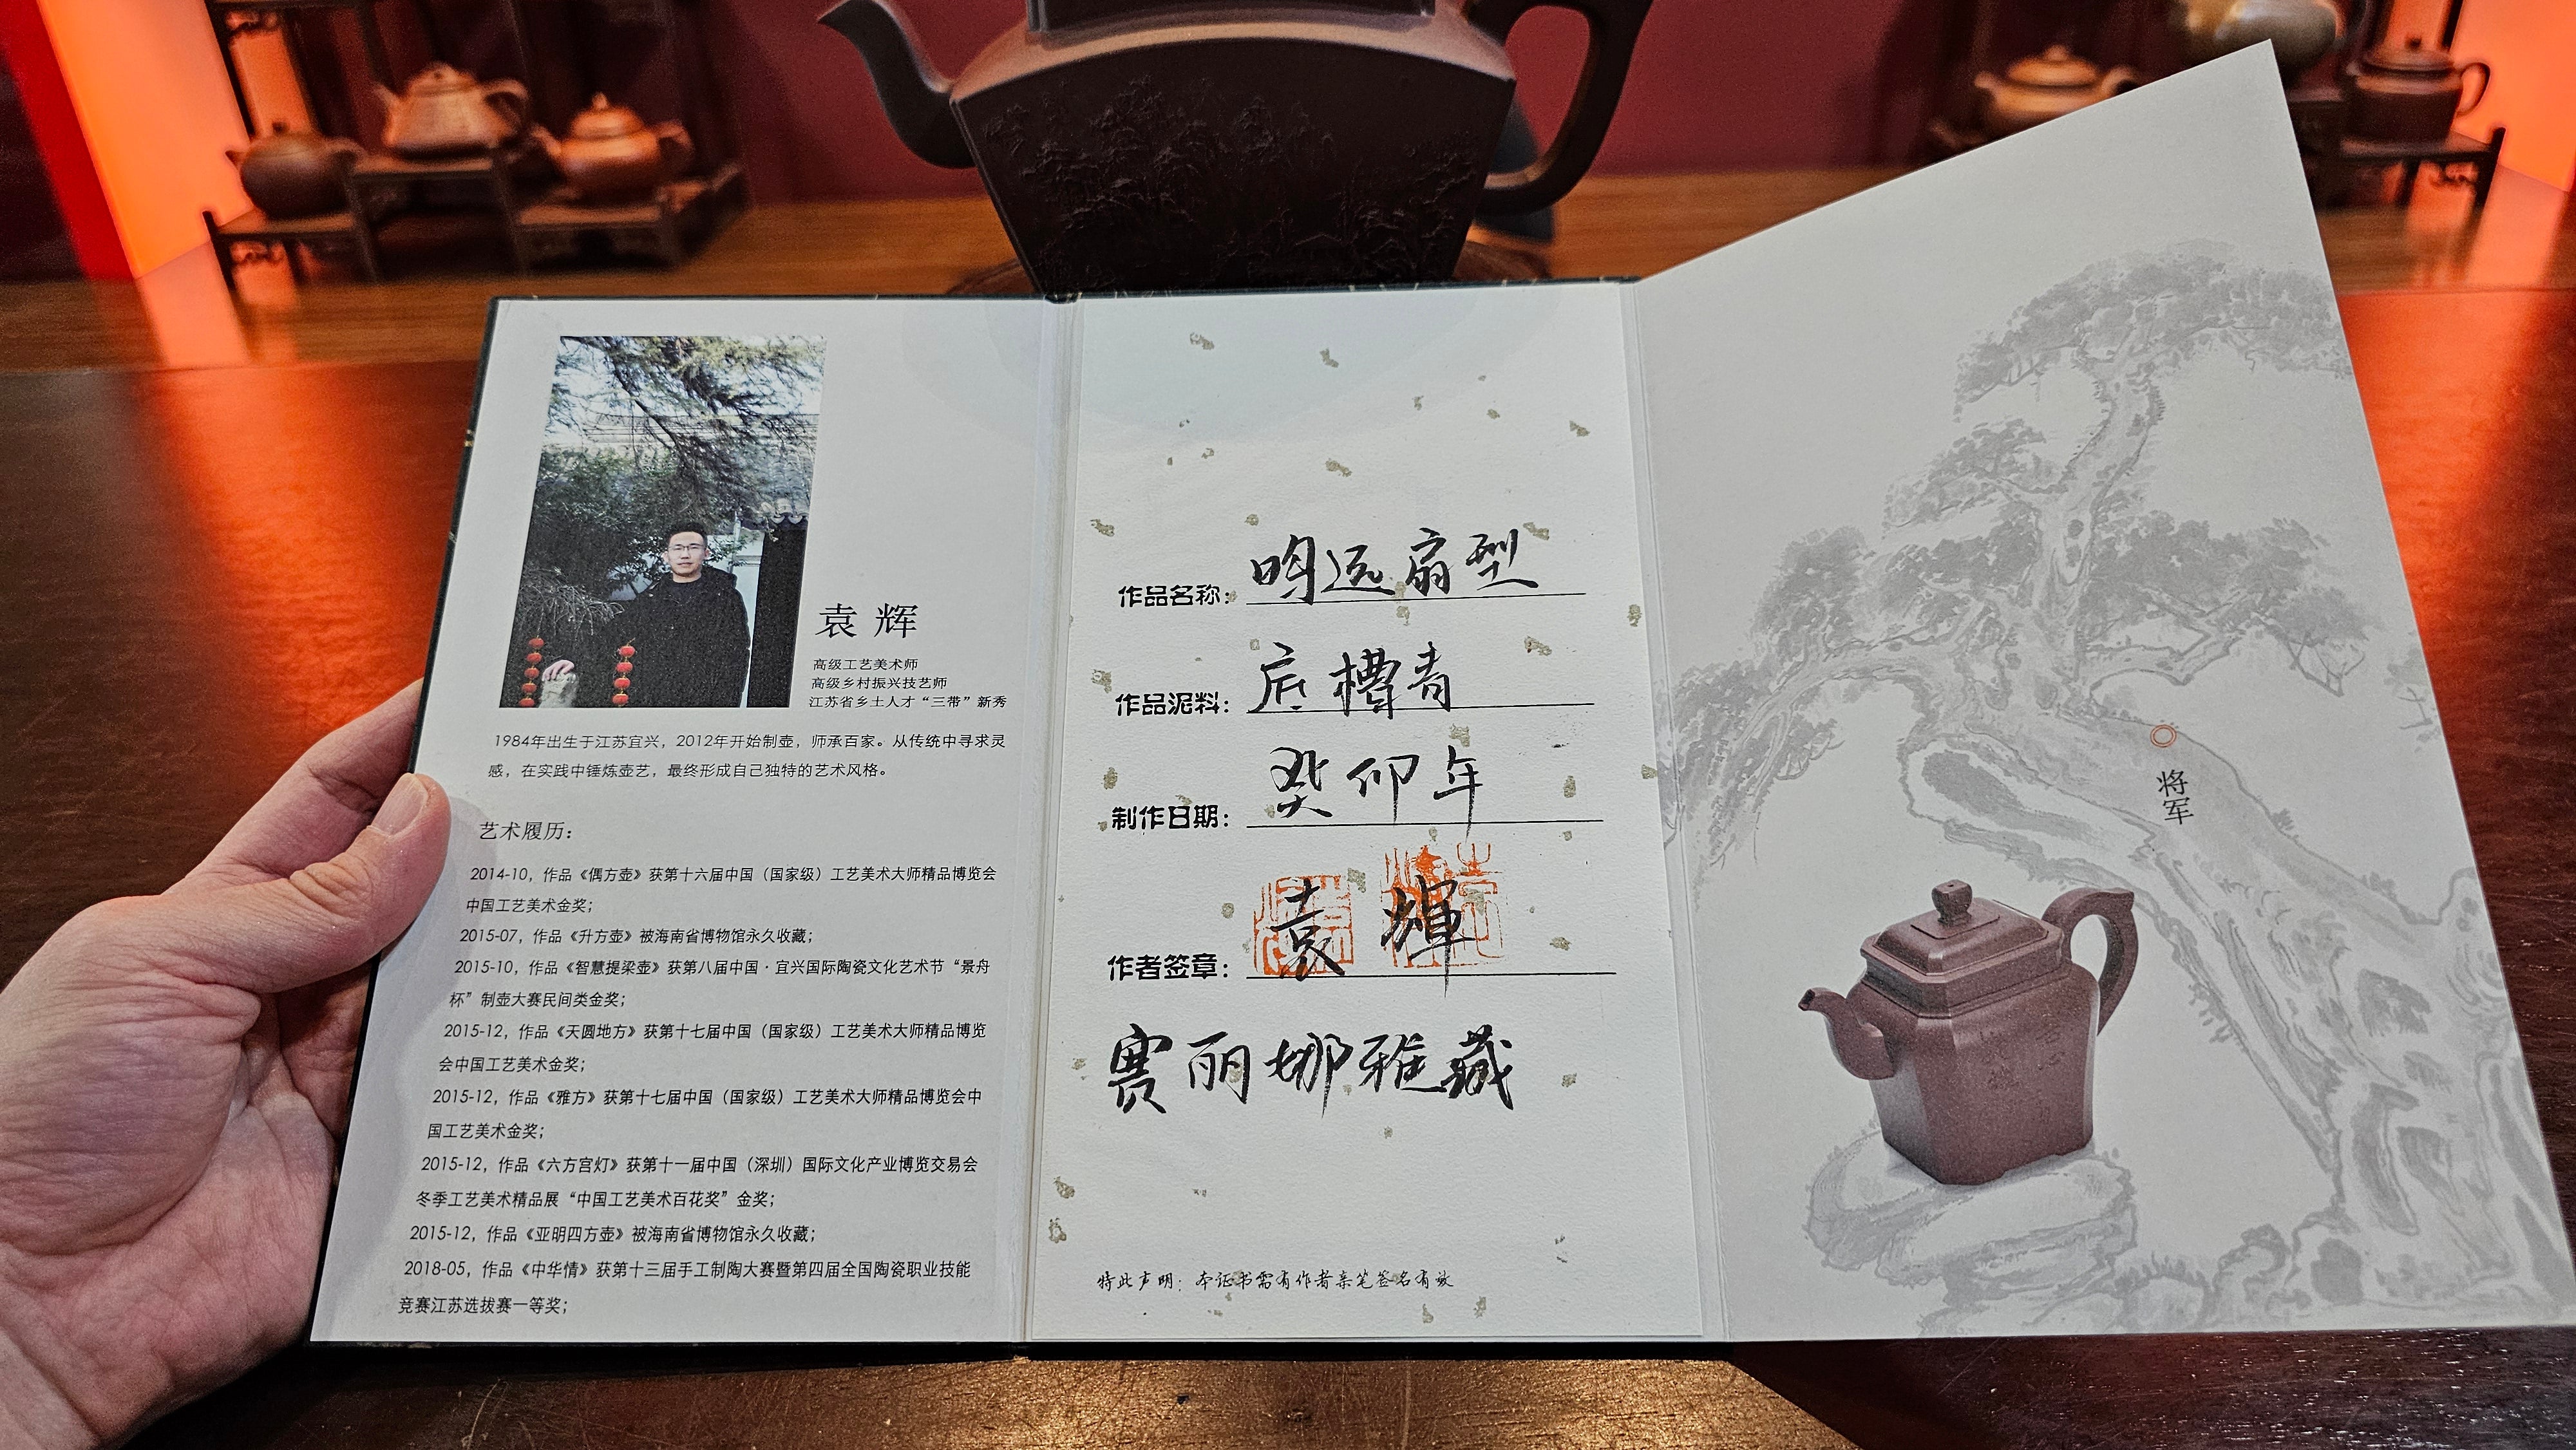 袁辉
高级工艺美术师
高级乡村振兴技艺师
江苏省乡土人才“三带”新秀
1984年出生于江苏宜兴，2012年开始制壶，师承百家。从传统中寻求灵
感，在实践中锤炼壶艺，最终形成自己独特的艺术风格。
艺术履历：
2014-10，作品《偶方壶》获第十六届中国（国家级）工艺美术大师精品博览会
中国工艺美术金奖；
2015-07，作品《升方壶》被海南省博物馆永久收藏；
2015-10，作品《智慧提梁壶》获第八届中国·宜兴国际陶瓷文化艺术节“景舟
杯”制壶大赛民间类金奖；
2015-12，作品《天圆地方》获第十七届中国（国家级）工艺美术大师精品博览
会中国工艺美术金奖；
2015-12，作品《雅方》获第十七届中国（国家级）工艺美术大师精品博览会中
国工艺美术金奖；
2015-12，作品《六方宫灯》获第十一届中国（深圳）国际文化产业博览交易会
冬季工艺美术精品展“中国工艺美术百花奖”金奖；
2015-12，作品《亚明四方壶》被海南省博物馆永久收藏；
2018-05，作品《中华情》获第十三届手工制陶大赛暨第四届全国陶瓷职业技能
竞赛江苏选拔赛一等奖；
作品名称：鸣远扇型
作品泥料：底槽青
制作日期：癸卯年
作者签章：袁輝
赛丽娜雅藏
特此声明：本证书需有作者亲笔签名有效
将军